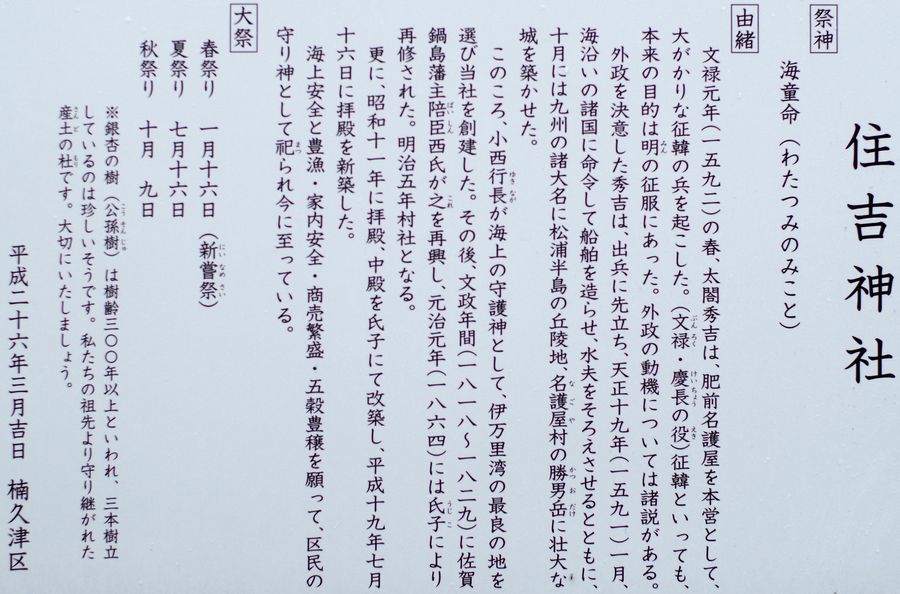 住吉神社
祭神
海童命（わたつみのみこと）
由緒
文禄元年（一五九二）の春、太閤秀吉は、肥前名護屋を本営として、
大がかりな征韓の兵を起こした。（文禄・慶長の役）征韓といっても、
本来の目的は明の征服にあった。外政の動機については諸説がある。
外政を決意した秀吉は、出兵に先立ち、天正十九年（一五九一）一月、
海沿いの諸国に命令して船舶を造らせ、水夫をそろえさせるとともに、
十月には九州の諸大名に松浦半島の丘陵地、名護屋村の勝男岳に壮大な
城を築かせた。
このころ、小西行長が海上の守護神として、伊万里湾の最良の地を
選び当社を創建した。その後、文政年間（一八一八～一八二九）に佐賀
鍋島藩主陪臣西氏が之を再興し、元治元年（一八六四）には氏子により
再修された。明治五年村社となる。
更に、昭和十一年に拝殿、中殿を氏子にて改築し、平成十九年七月
十六日に拝殿を新築した。
海上安全と豊漁・家内安全・商売繁盛・五穀豊穣を願って、区民の
守り神として祀られ今に至っている。
大祭
春祭り 一月十六日（新嘗祭）
夏祭り 七月十六日
秋祭り 十月 九日
※銀杏の樹（公孫樹）は樹齢三〇〇年以上といわれ、三本樹立
しているのは珍しいそうです。私たちの祖先より守り継がれた
産土の杜です。大切にいたしましょう。
平成二十六年三月吉日 楠久津区